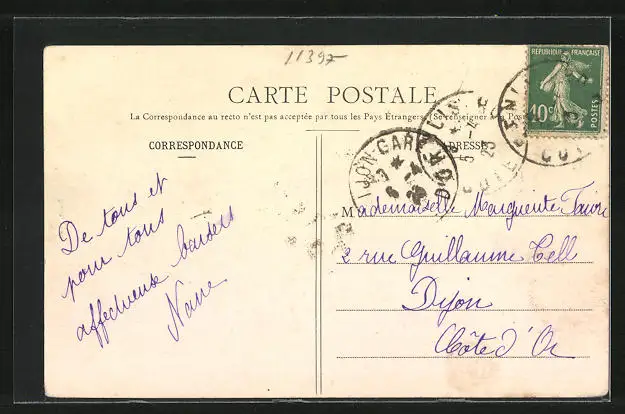 11397
CARTE POSTALE
La Correspondance au recto n'est pas acceptée par tous les Pays Étrangers (Se renseigner à la Poste
CORRESPONDANCE
ADRESSE
REPUBLIQUE FRANÇAISE
10c
POSTES
DIJON-GARE
COTE D'OR
De tous et
pour tous
affectueux baisers
Mademoiselle Marguerite
2 rue Guillaume Tell
Dijon
Côte d'Or